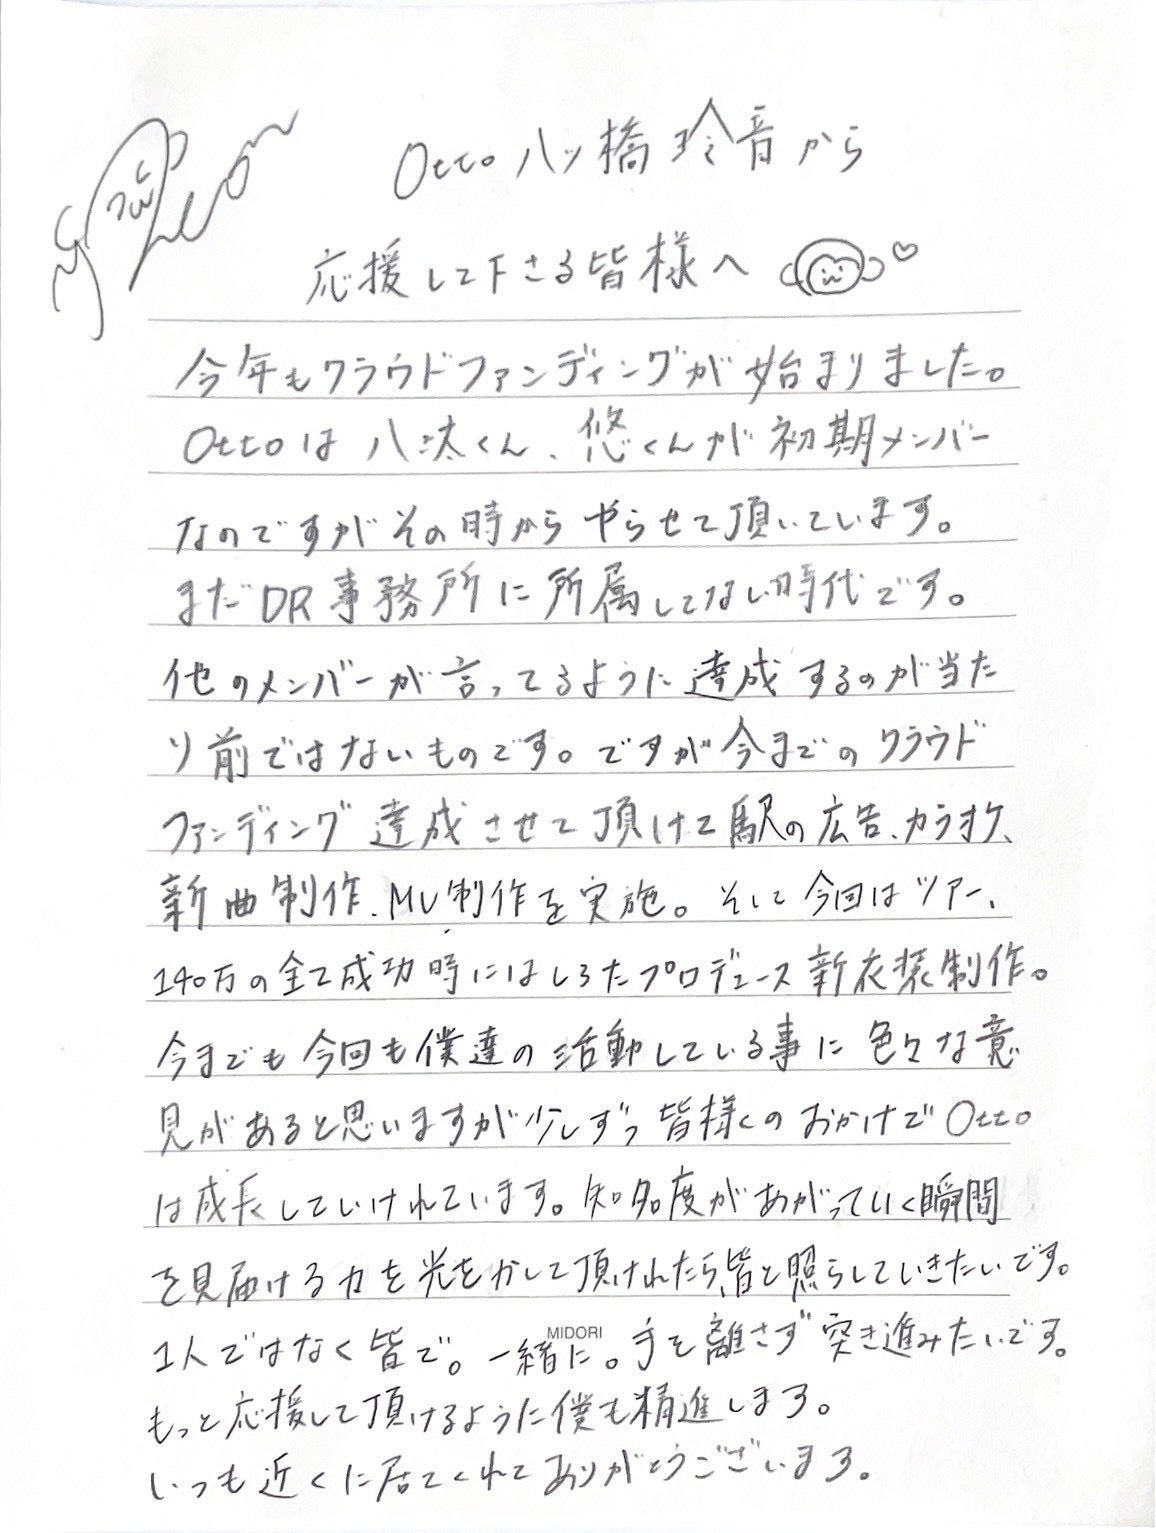 Otto 八ツ橋 玲音から
応援して下さる皆様へ
今年もクラウドファンディングが始まりました。
Ottoは 八汰くん、悠くんが初期メンバー
なのですがその時から やらせて頂いています。
まだDR事務所に所属してない時代です。
他のメンバーが言ってるように達成するのが当た
り前ではないものです。ですが今までのクラウド
ファンディング 達成させて頂けて駅の広告、カラオケ、
新曲制作、MV制作を実施。そして今回はツアー、
140万の全て成功時にはしろたプロデュース新衣装制作。
今までも今回も僕達の活動している事に色々な意
見があると思いますが少しずつ皆様くのおかげでOtto
は成長していけれています。知名度があがっていく瞬間
を見届ける力を光をかして頂けれたら、皆と照らしていきたいです。
1人ではなく皆で。一緒に。手を離さず突き進みたいです。
MIDORI
もっと応援して頂けるように僕も精進します。
いつも近くに居てくれてありがとうございます。